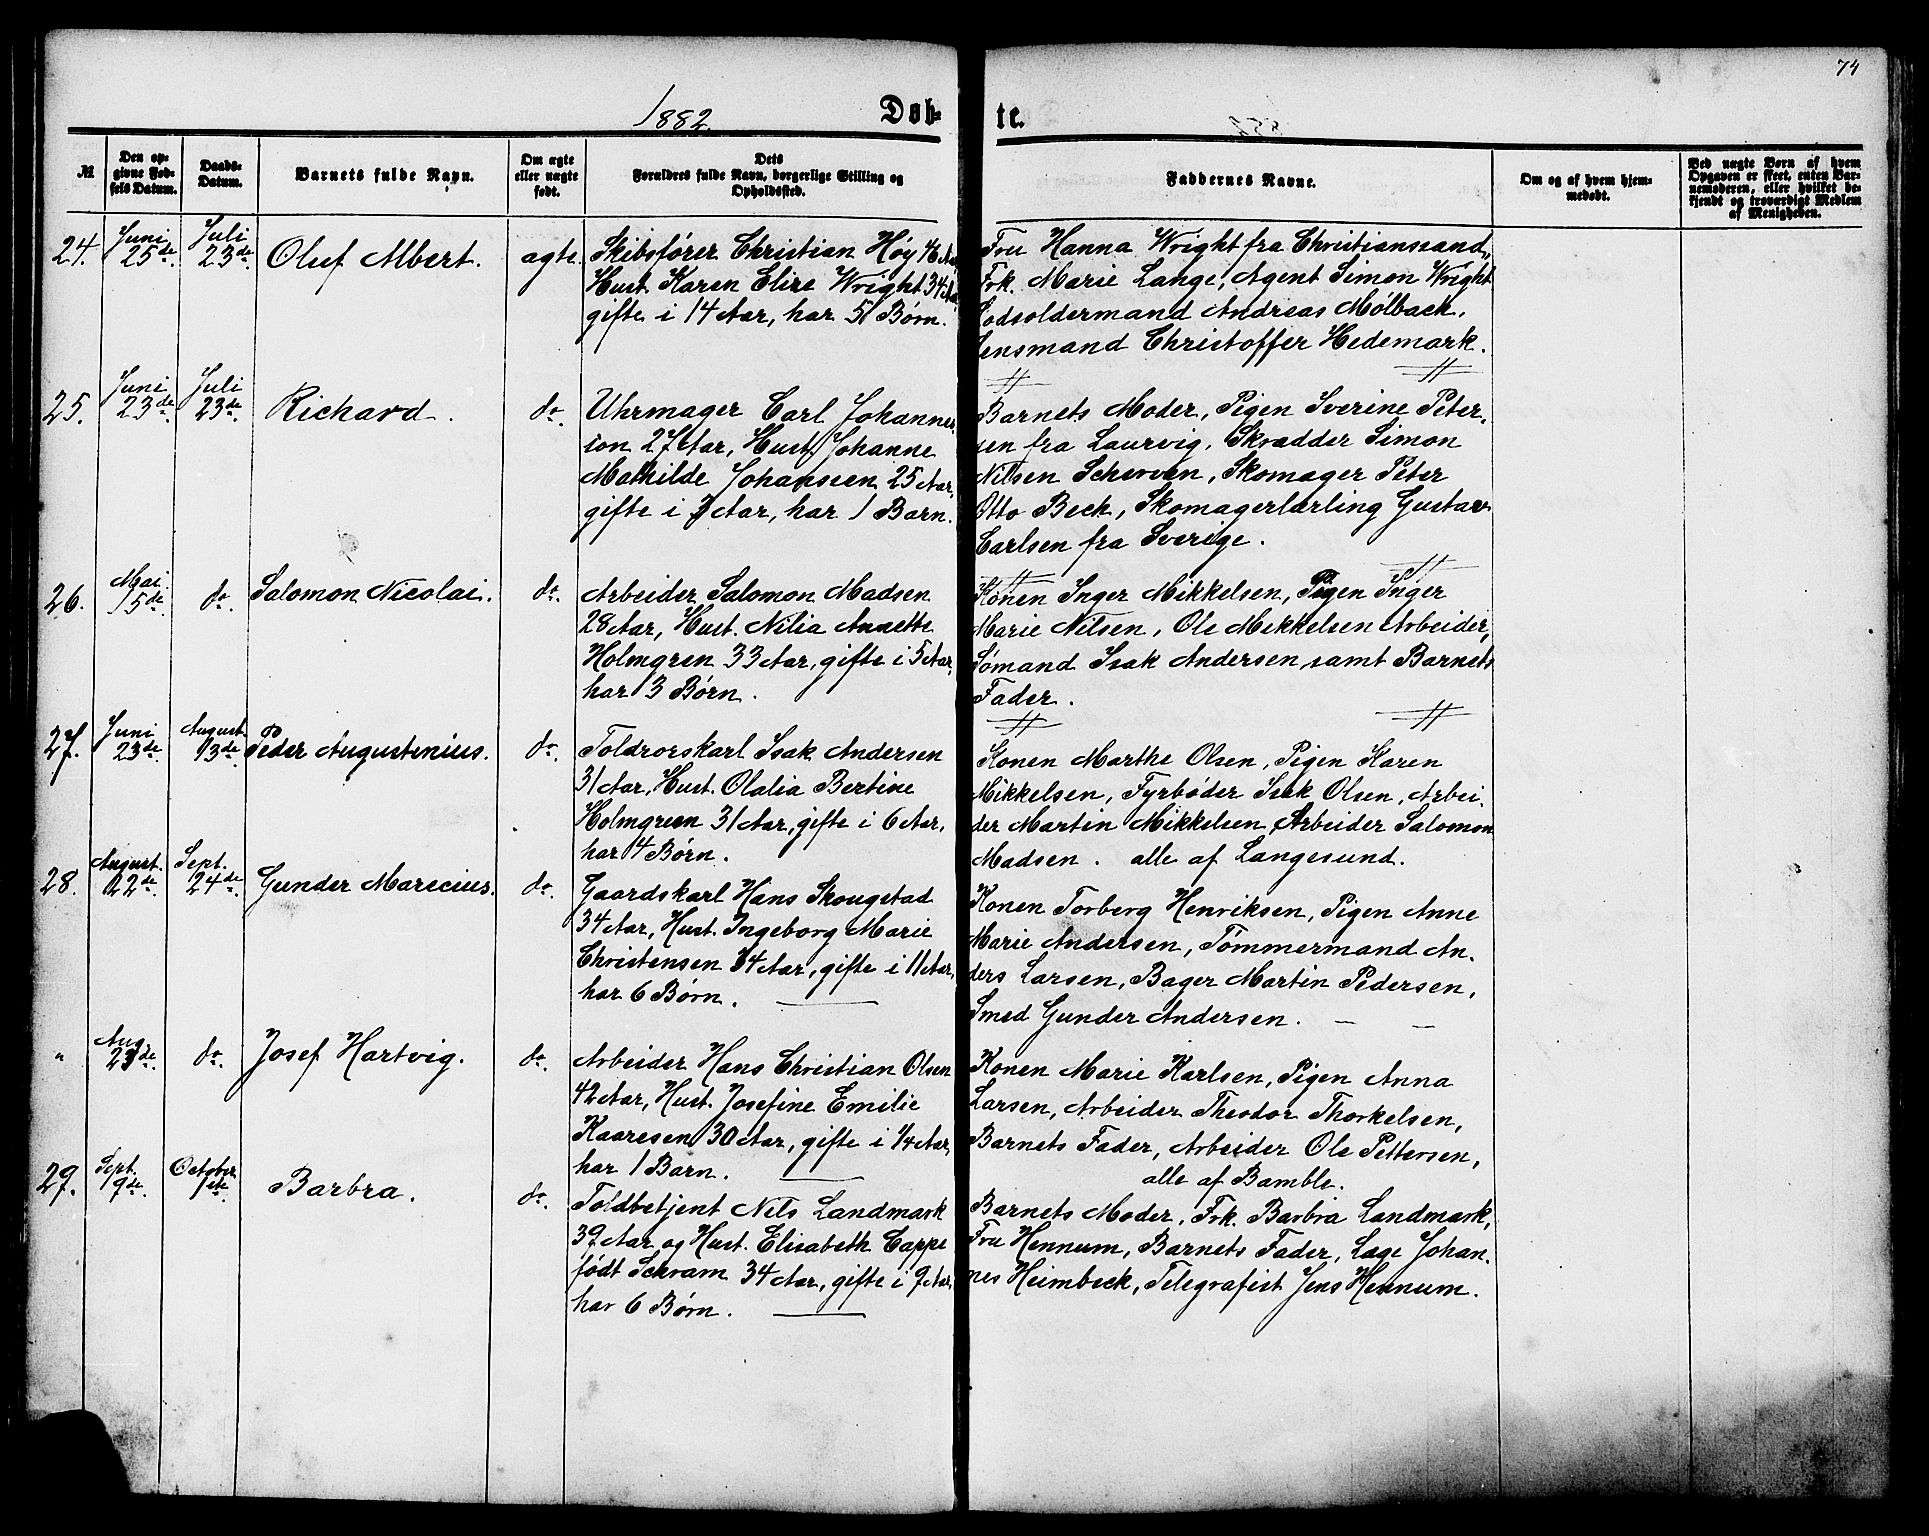 74
1882.
Døb-
te.
№
Den op-
givne Fød-
sels Datum.
Daabs-
Datum.
Barnets fulde Navn.
Om ægte
eller uægte
født.
Dets
Forældres fulde Navn, borgerlige Stilling og
Opholdssted.
Faddernes Navne.
Om og af hvem hjem-
medøbt.
Ved uægte Børn af hvem
Opgaven er skeet, enten Bar-
nemoderen, eller hvilket be-
kjendt og troværdigt Medlem
af Menigheden.
24.
Juni
25de.
Juli
23de.
Oluf Albert.
ægte.
Skibsfører Christian Høy 46 Aar
Hust. Karen Elise Wright 34 Aar
gifte i 14 Aar, har 5 Børn.
Fru Hanna Wright fra Christianssand,
Frk. Marie Lange, Agent Simon Wright
Lodsoldermand Andreas Mølback,
Lensmand Christoffer Hedemark.
25.
Juni
23de
Juli
23de.
Richard.
do.
Uhrmager Carl Johannes-
sen 27 Aar, Hust. Johanne
Mathilde Johanssen 25 Aar,
gifte i Aar, har 1 Barn.
Barnets Moder, Pigen Iverine Peter-
sen fra Laurvig, Skrædder Simon
Nilsen Scherven, Skomager Peter
Otto Beck, Skomagerlærling Gustav
Carlsen fra Sverige.
26.
Mai
15de.
do.
Salomon Nicolai.
do.
Arbeider Salomon Madsen
28 Aar, Hust. Nilia Annette
Holmgren 33 Aar, gifte i 5 Aar,
har 3 Børn.
Konen Inger Mikkelsen, Pigen Inger
Marie Nilsen, Ole Mikkelsen Arbeider,
Sømand Isak Andersen samt Barnets
Fader.
27.
Juni
23de.
August
13de.
Peder Augustenius.
do.
Toldrorskarl Isak Andersen
31 Aar, Hust. Olalia Bertine
Holmgreen 31 Aar, gifte i 6 Aar,
har 4 Børn.
Konen Marthe Olsen, Pigen Karen
Mikkelsen, Fyrbøder Isak Olsen, Arbei-
der Martin Mikkelsen, Arbeider Salomon
Madsen. alle af Langesund.
28.
August.
22de.
Sept.
24de.
Gunder Marecius.
do.
Gaardskarl Hans Skougstad
34 Aar, Hust. Ingeborg Marie
Christensen 34 Aar, gifte i 11 Aar,
har 6 Børn.
Konen Torberg Henriksen, Pigen Anne
Marie Andersen, Tømmermand An-
ders Larsen, Bager Martin Pedersen,
Smed Gunder Andersen.
"
Aug.
23de.
do.
Josef Hartvig.
do.
Arbeider Hans Christian Olsen
42 Aar, Hust. Josefine Emilie
Kaaresen 30 Aar, gifte i 1/4 Aar,
har 1 Barn.
Konen Marie Karlsen, Pigen Anna
Larsen, Arbeider Theodor Thorkelsen,
Barnets Fader, Arbeider Ole Pettersen,
alle af Bamble.
29.
Sept.
9de.
October
1ste.
Barbra.
do.
Toldbetjent Nils Landmark
39 Aar og Hust. Elisabeth Cappe
født Schram 34 Aar, gifte i 9 Aar,
har 6 Børn.
Barnets Moder, Frk. Barbra Landmark,
Fru Hennum, Barnets Fader, Læge Johan-
nes Heimbeck, Telegrafist Jens Hennum.